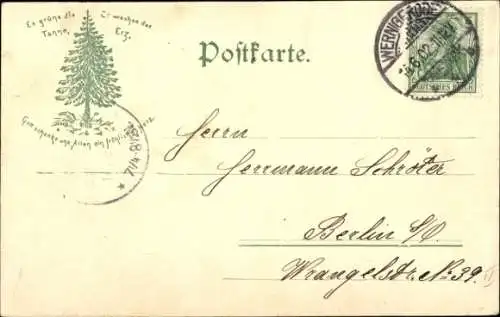 Es grüne die Tanne,
Es wachse das Erz,
Gott schenke uns allen ein fröhliches Herz.
Postkarte.
WERNIGERODE
DEUTSCHES REICH
Herrn
Herrmann Schröter
Berlin S/O
Wrangelstr. No 39.